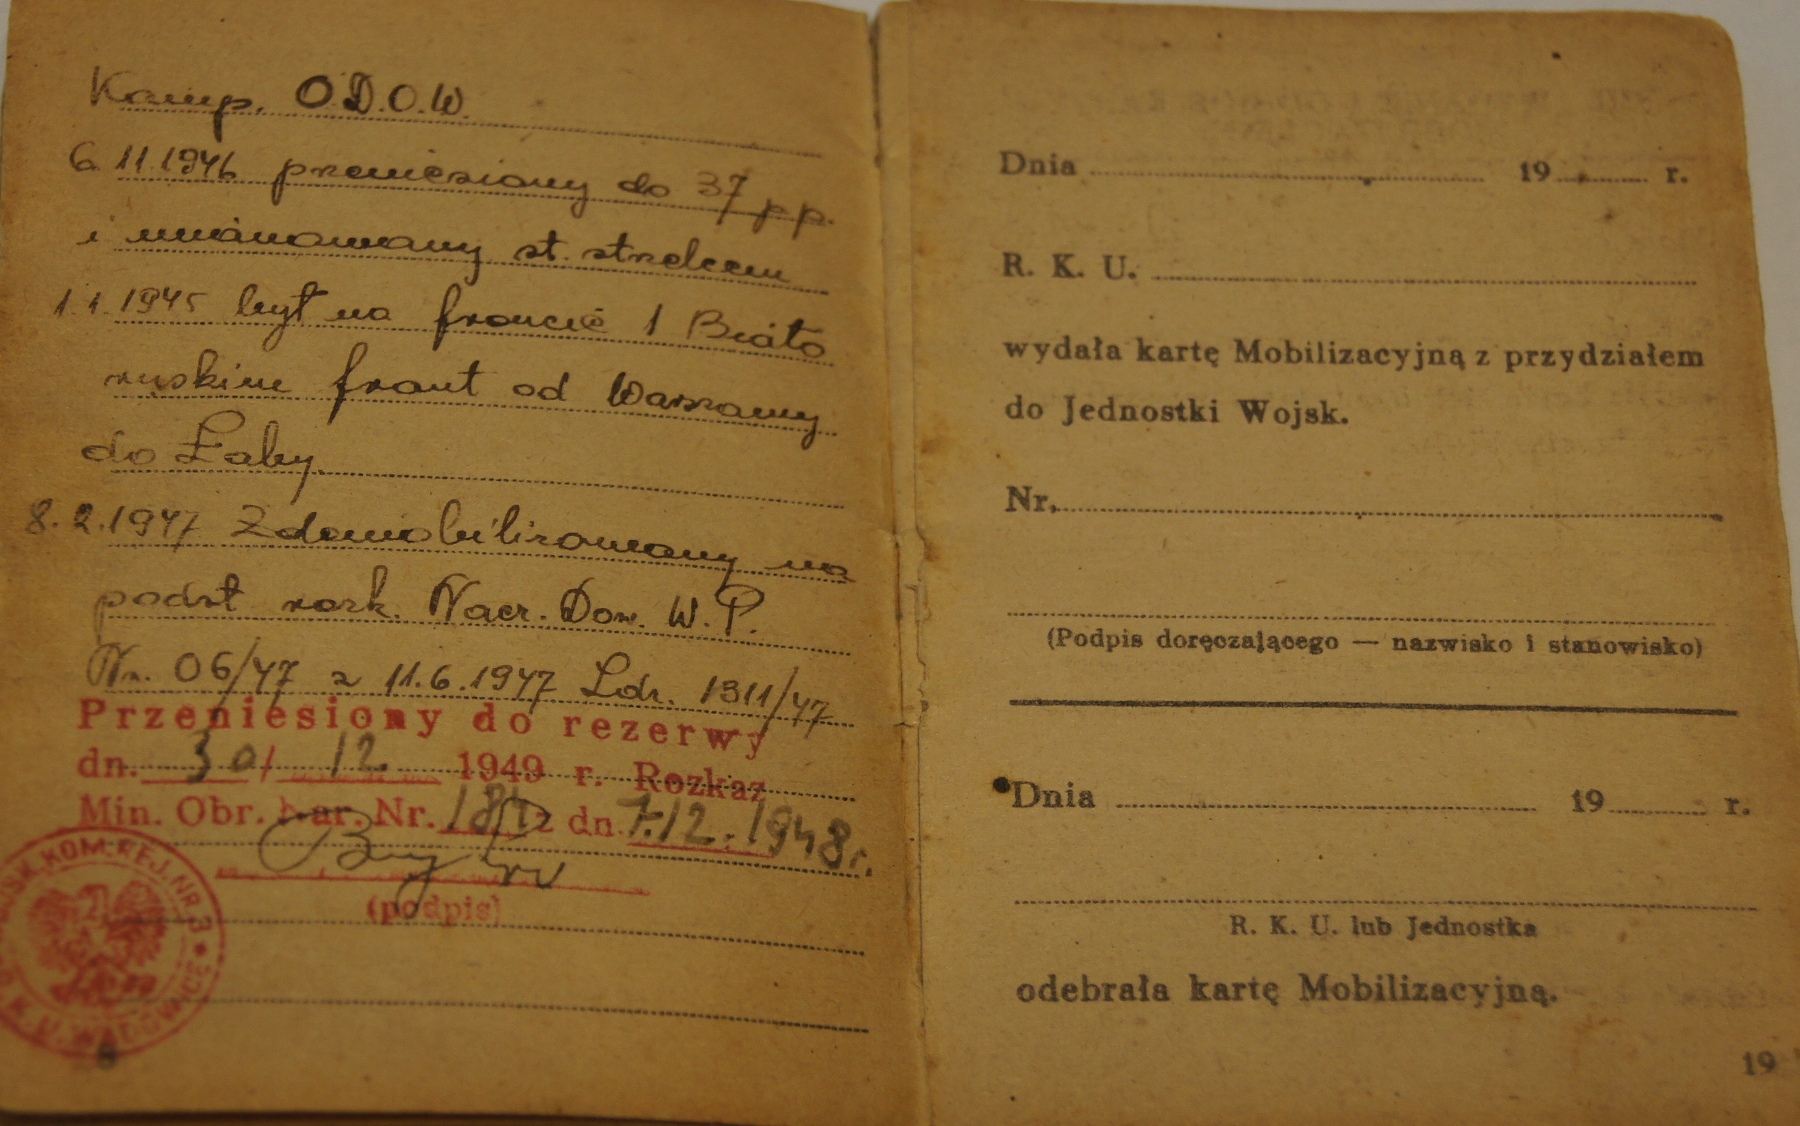 Kamp. O.D.O.W.
6 11.1946 przeniesiony do 37 pp.
i mianowany st. strzelcem
1.1.1945 był na froncie 1 Biało
ruskim front od Warszawy
do Łaby.
8.2.1947 Zdemobilizowany na
podst rozk. Nacz. Dow. W.P.
Nr. 06/47 z 11.6.1947 Ldz. 1311/47
Przeniesiony do rezerwy
dn. 30/ 12. 1949 r. Rozkaz
Min. Obr. Nar. Nr. z dn. 7.12.1948 r.
(podpis)
KOM. REJ. NR 3
R. K. U. WADOWICE
8
Dnia 19 r.
R. K. U.
wydała kartę Mobilizacyjną z przydziałem
do Jednostki Wojsk.
Nr.
(Podpis doręczającego — nazwisko i stanowisko)
Dnia 19 r.
R. K. U. lub Jednostka
odebrała kartę Mobilizacyjną.
19